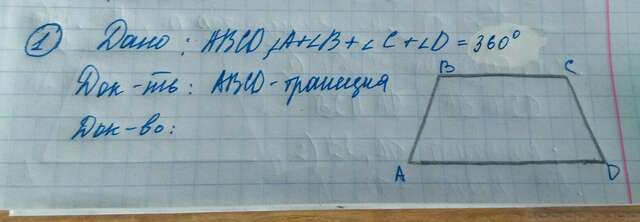 ① Дано: ABCD, ∠A+∠B+∠C+∠D = 360°
Док-ть: ABCD-трапеция
Док-во:
B C
A D